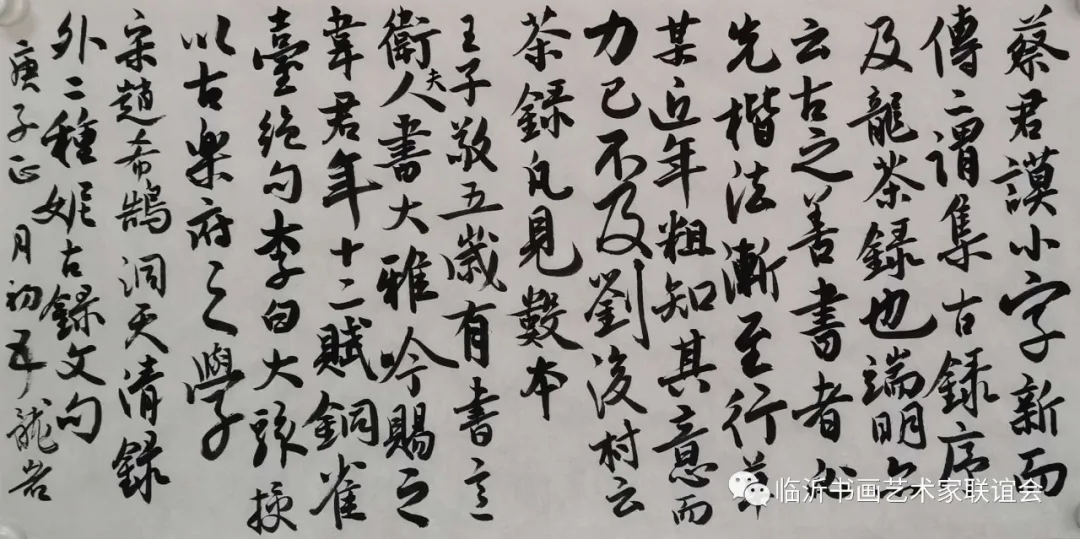 蔡君謨小字新而
傳二謂集古錄序
及龍茶録也端明亦
云古之善書者必
先楷法漸至行草
某近年粗知其意而
力已不及劉後村云
茶録凡見數本
王子敬五歲有書意
衞夫人書大雅吟賜之
韋君年十二賦銅雀
臺絶句李白大駭授
以古樂府之學
宋趙希鵠洞天清録
外二種妮古錄文句
庚子正月初五龍岩
临沂书画艺术家联谊会